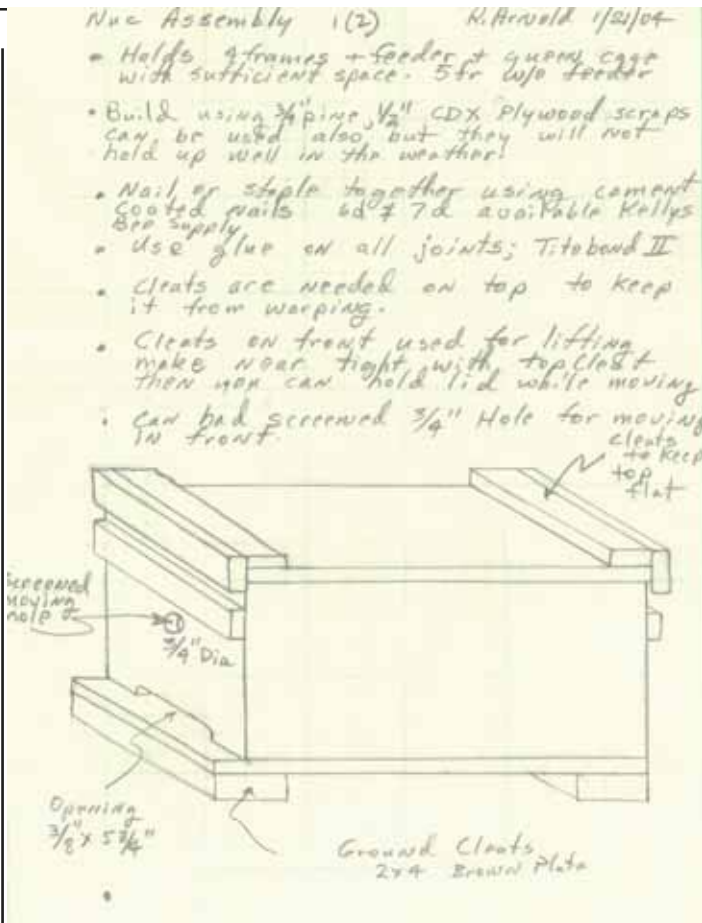 Nuc Assembly 1(2) R. Arnold 1/21/04
• Holds 4 frames + feeder + queen cage
with sufficient space. 5 fr w/o feeder
• Build using 3/4" pine, 1/2" CDX Plywood scraps
can be used also but they will not
hold up well in the weather!
• Nail or staple together using cement
coated nails 6d & 7d available Kellys
Bee Supply
• Use glue on all joints; Titebond II
• Cleats are needed on top to keep
it from warping.
• Cleats on front used for lifting
make near tight with top cleat
then you can hold lid while moving
• Can had screened 3/4" Hole for moving
in front.
cleats
to keep
top
flat
Screened
moving
hole
3/4" Dia
Opening
3/8" x 5 3/4"
Ground Cleats
2x4 Brown Plate